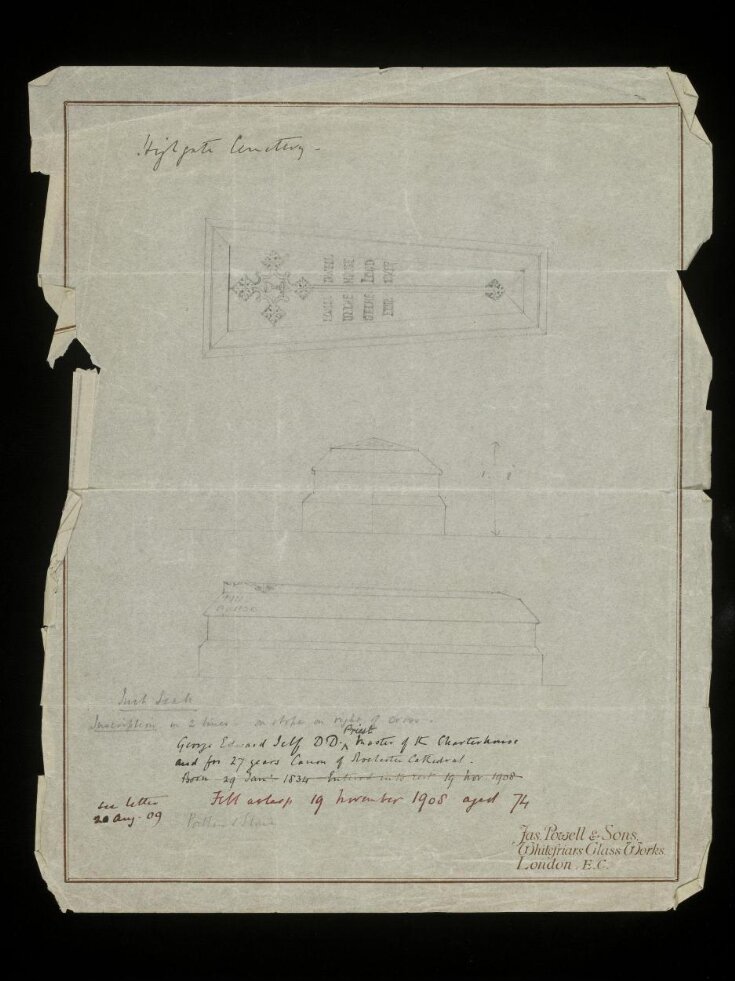 Highgate Cemetery -
LORD
Inch Scale
Inscription in 2 lines - on slope on right of cross.
George Edward Jelf DD. ^ Priest Master of the Charterhouse
and for 27 years Canon of Rochester Cathedral.
Born 29 Jany 1834 Entered into rest 19 Nov. 1908
Fell asleep 19 November 1908 aged 74
see letter
20 Aug. 09
Portland Stone
Jas. Powell & Sons,
Whitefriars Glass Works,
London. E.C.